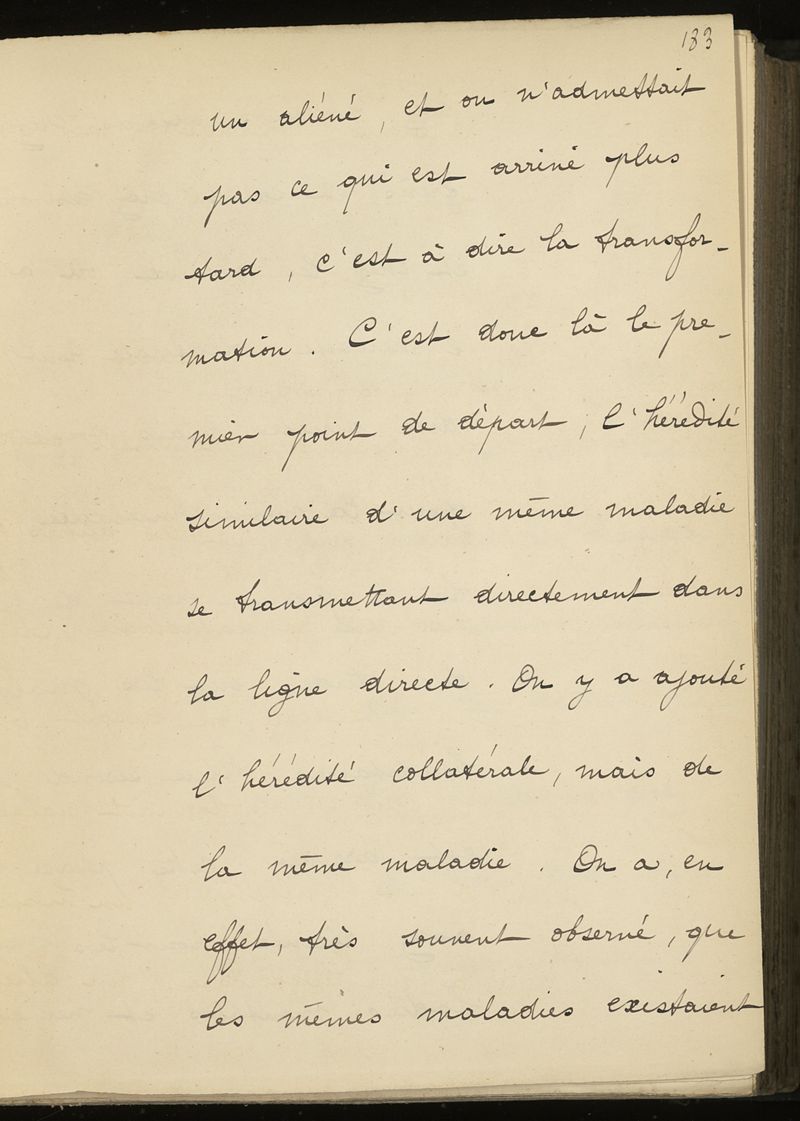 183
un aliéné, et on n'admettait
pas ce qui est arrivé plus
tard, c'est à dire la transfor-
mation. C'est donc là le pre-
mier point de départ, l'hérédité
similaire d'une même maladie
se transmettant directement dans
la ligne directe. On y a ajouté
l'hérédité collatérale, mais de
la même maladie. On a, en
effet, très souvent observé, que
les mêmes maladies existaient